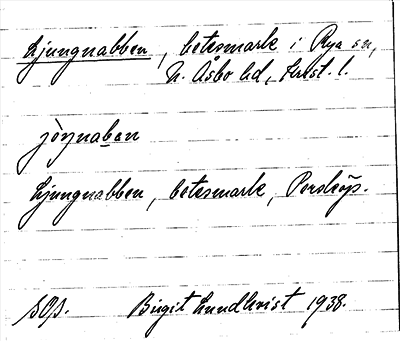 Ljungnabben, betesmark i Rya sn,
N. Åsbo hd, Krist. l.
jòŋnaban
Ljungnabben, betesmark, Perstorp.
SOS. Birgit Lundkvist 1938.